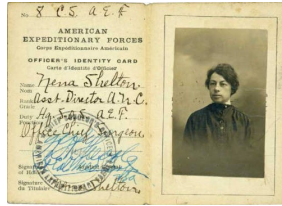 No. 8 C.S. A.E.F
AMERICAN
EXPEDITIONARY FORCES
Corps Expéditionnaire Américain
OFFICER'S IDENTITY CARD
Carte d'Identité d'Officier
Name Nena Shelton
Nom
Rank Asst. Director A.N.C.
Grade
Duty Hq. S.O.S. A.E.F.
Office Chief Surgeon
Signature
of Holder
Signature du
Titulaire Shelton